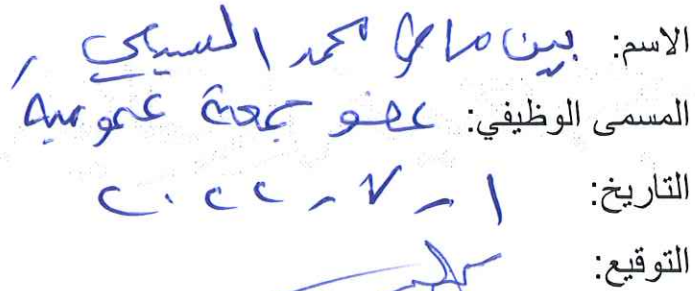 الاسم: محمد السبيعي
المسمى الوظيفي: عضو جمعية عمومية
التاريخ: ١ - ٧ - ٢٠٢٢
التوقيع: